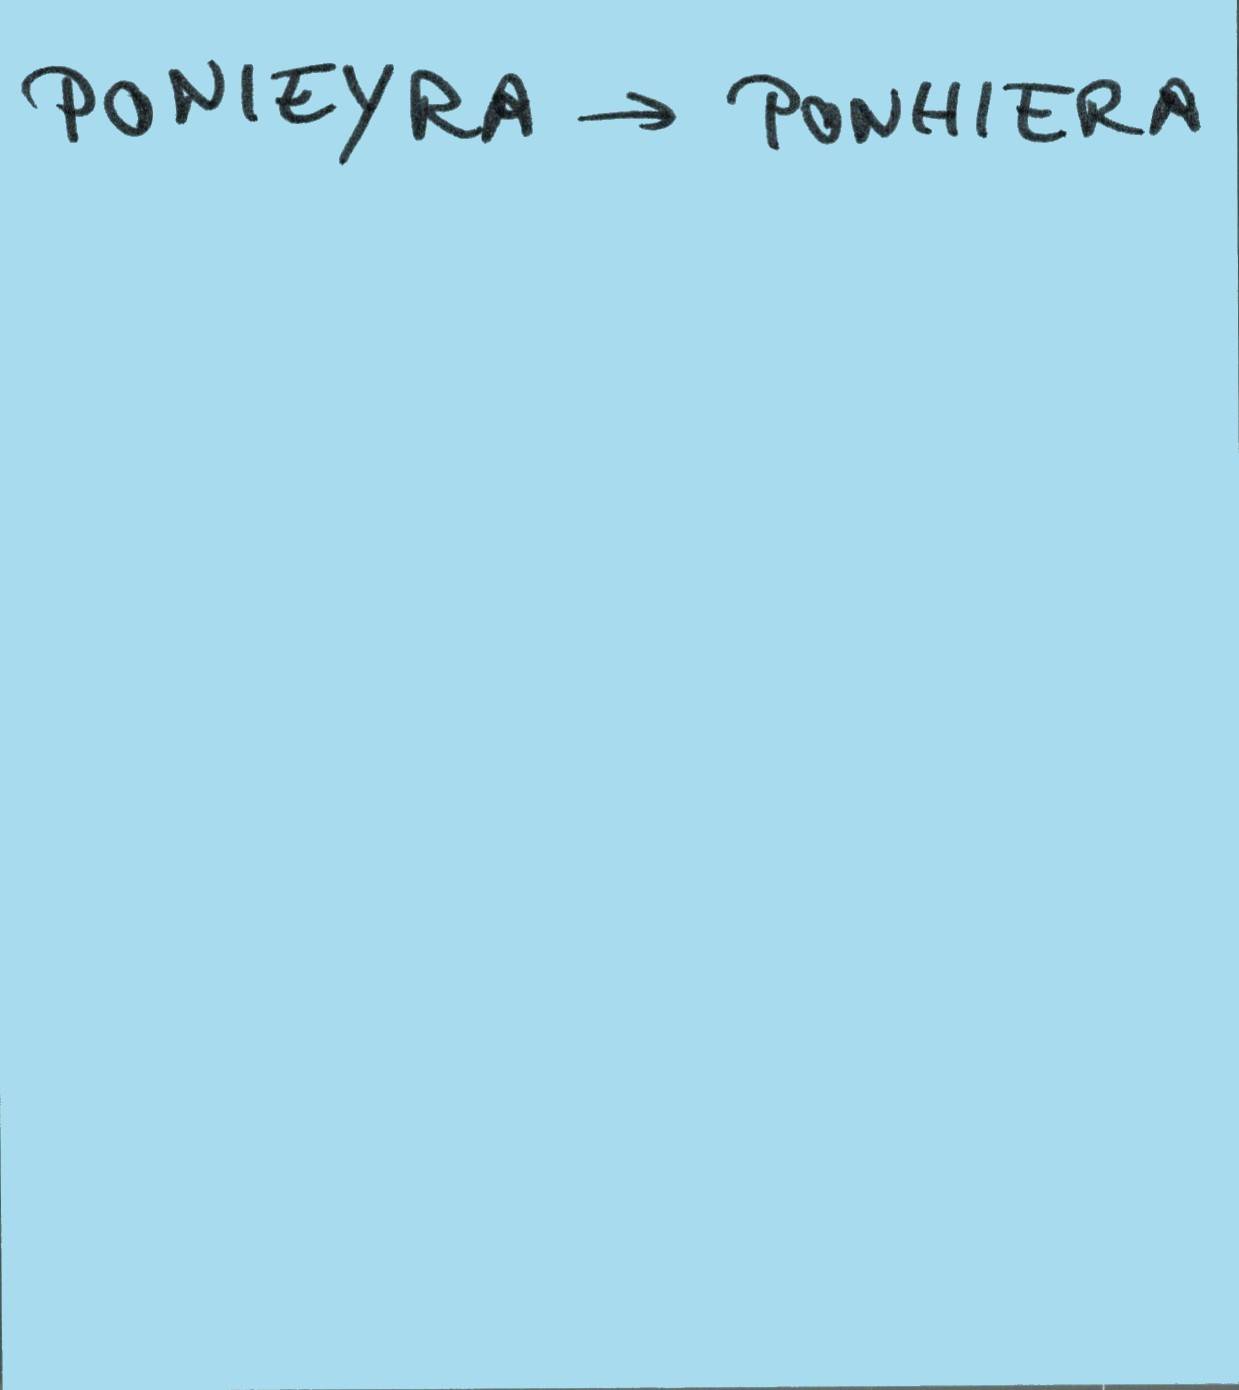 PONIEYRA → PONHIERA